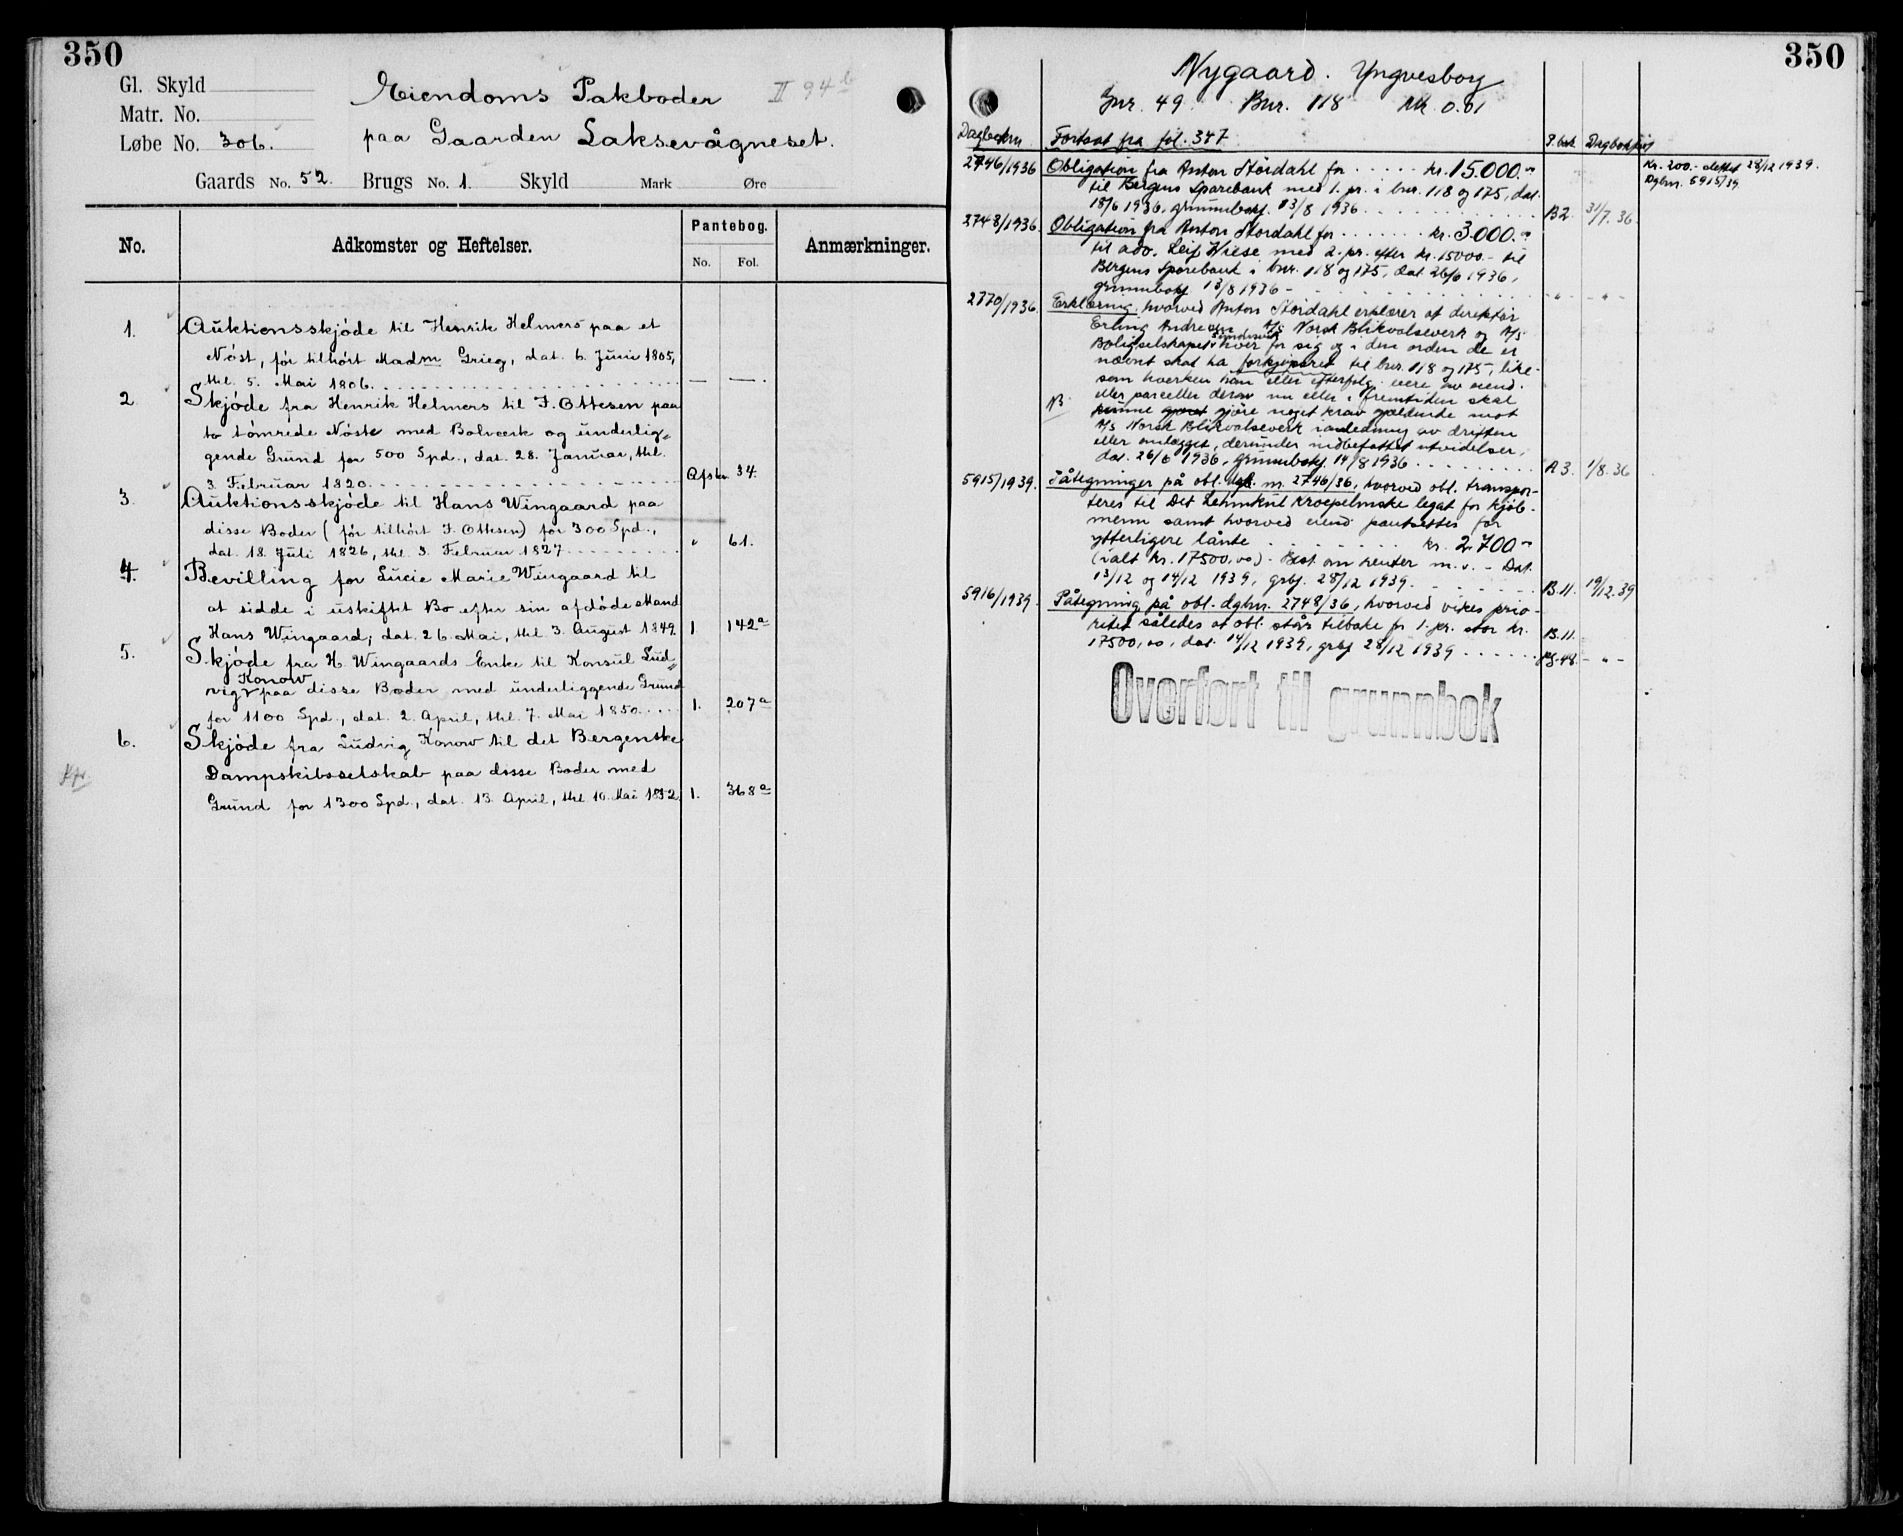 350
Gl. Skyld
Matr. No.
Løbe No. 306.
Eiendoms Pakboder II 94b
paa Gaarden Laksevågneset.
Gaards No. 52. Brugs No. 1. Skyld Mark Øre
No. Adkomster og Heftelser. Pantebog. Anmærkninger.
No. Fol.
1. Auktionsskjöde til Henrik Helmers paa et
Nöst, för tilhört Madm Grieg, dat. 6. Juni 1805,
thl. 5. Mai 1806. — —.
2. Skjöde fra Henrik Helmers til J. Ottesen paa
to tömrede Nöste med Bolværk og underlig=
gende Grund for 500 Spd., dat. 28. Januar, thl.
3. Februar 1820. Afskr. 34.
3. Auktionsskjöde til Hans Wingaard paa
disse Boder (för tilhört J. Ottesen) for 300 Spd.,
dat. 18. Juli 1826, thl. 3. Februar 1827. " 61.
4. Bevilling for Lucie Marie Wingaard til
at sidde i uskiftet Bo efter sin afdöde Mand
Hans Wingaard, dat. 26. Mai, thl. 3. August 1849. 1. 142a
5. Skjöde fra H. Wingaards Enke til Konsul Lud=
vig Konow paa disse Boder med underliggende Grund
for 1100 Spd., dat. 2. April, thl. 7. Mai 1850. 1. 207a
6. Skjöde fra Ludvig Konow til det Bergenske
Dampskibsselskab paa disse Boder med
Grund for 1300 Spd., dat. 13. April, thl. 10. Mai 1852. 1. 368a
350
Nygaard. Yngvesborg
Gnr. 49. Bnr. 118 Mk. 0.01
Dagboknr. Fortsat fra fol. 347 P. bok Dagbokført
2746/1936 Obligation fra Anton Stordahl for kr. 15.000.-
til Bergens Sparebank med 1. pr. i bnr. 118 og 175, dat.
18/6 1936, grunnbokf. 13/8 1936 B2. 31/7. 36.
Kr. 200.- slettet 28/12 1939.
Dgbnr. 5915/39
2748/1936. Obligation fra Anton Stordahl for kr. 3.000.-
til adv. Leif Wiese med 2. pr. efter kr. 15000.- til
Bergens Sparebank i bnr. 118 og 175, dat. 26/6 1936,
grunnbokf. 13/8 1936 - - " - - " -
2770/1936. Erklæring, hvorved Anton Stordahl erklærer at direktør
Erling Andresen, A/S Norsk Blikvalseverk og A/S
Boligselskapet hver for sig og i den orden de er
nævnt skal ha forkjøpsret til bnr. 118 og 175, like-
som hverken han eller efterfølg. eiere av eiend.
eller parceller derav nu eller i fremtiden skal
kunne gjøre noget krav gjeldende mot
A/S Norsk Blikvalseverk i anledning av driften
eller anlegget, derunder indbefattet utvidelser,
dat. 26/6 1936, grunnbokf. 14/8 1936 A 3. 1/8. 36
5915/1939. Påtegninger på obl. dgb. nr. 2746/36, hvorved obl. transpor-
teres til Det Lehmkul Kroepelinske legat for kjøb-
menn samt hvorved eiend. pantsettes for
ytterligere lånte kr. 2.700.-
(ialt kr. 17500,00). - Best. om renter m. v. - Dat.
13/12 og 14/12 1939, grbf. 28/12 1939. B. 11. 19/12. 39
5916/1939. Påtegning på obl. dgbnr. 2748/36, hvorved vikes prio-
ritet således at obl. står tilbake for 1. pr. stor kr.
17500,00, dat. 14/12 1939, grbf. 28/12 1939 B. 11. pg. 48. - " -
Overført til grunnbok